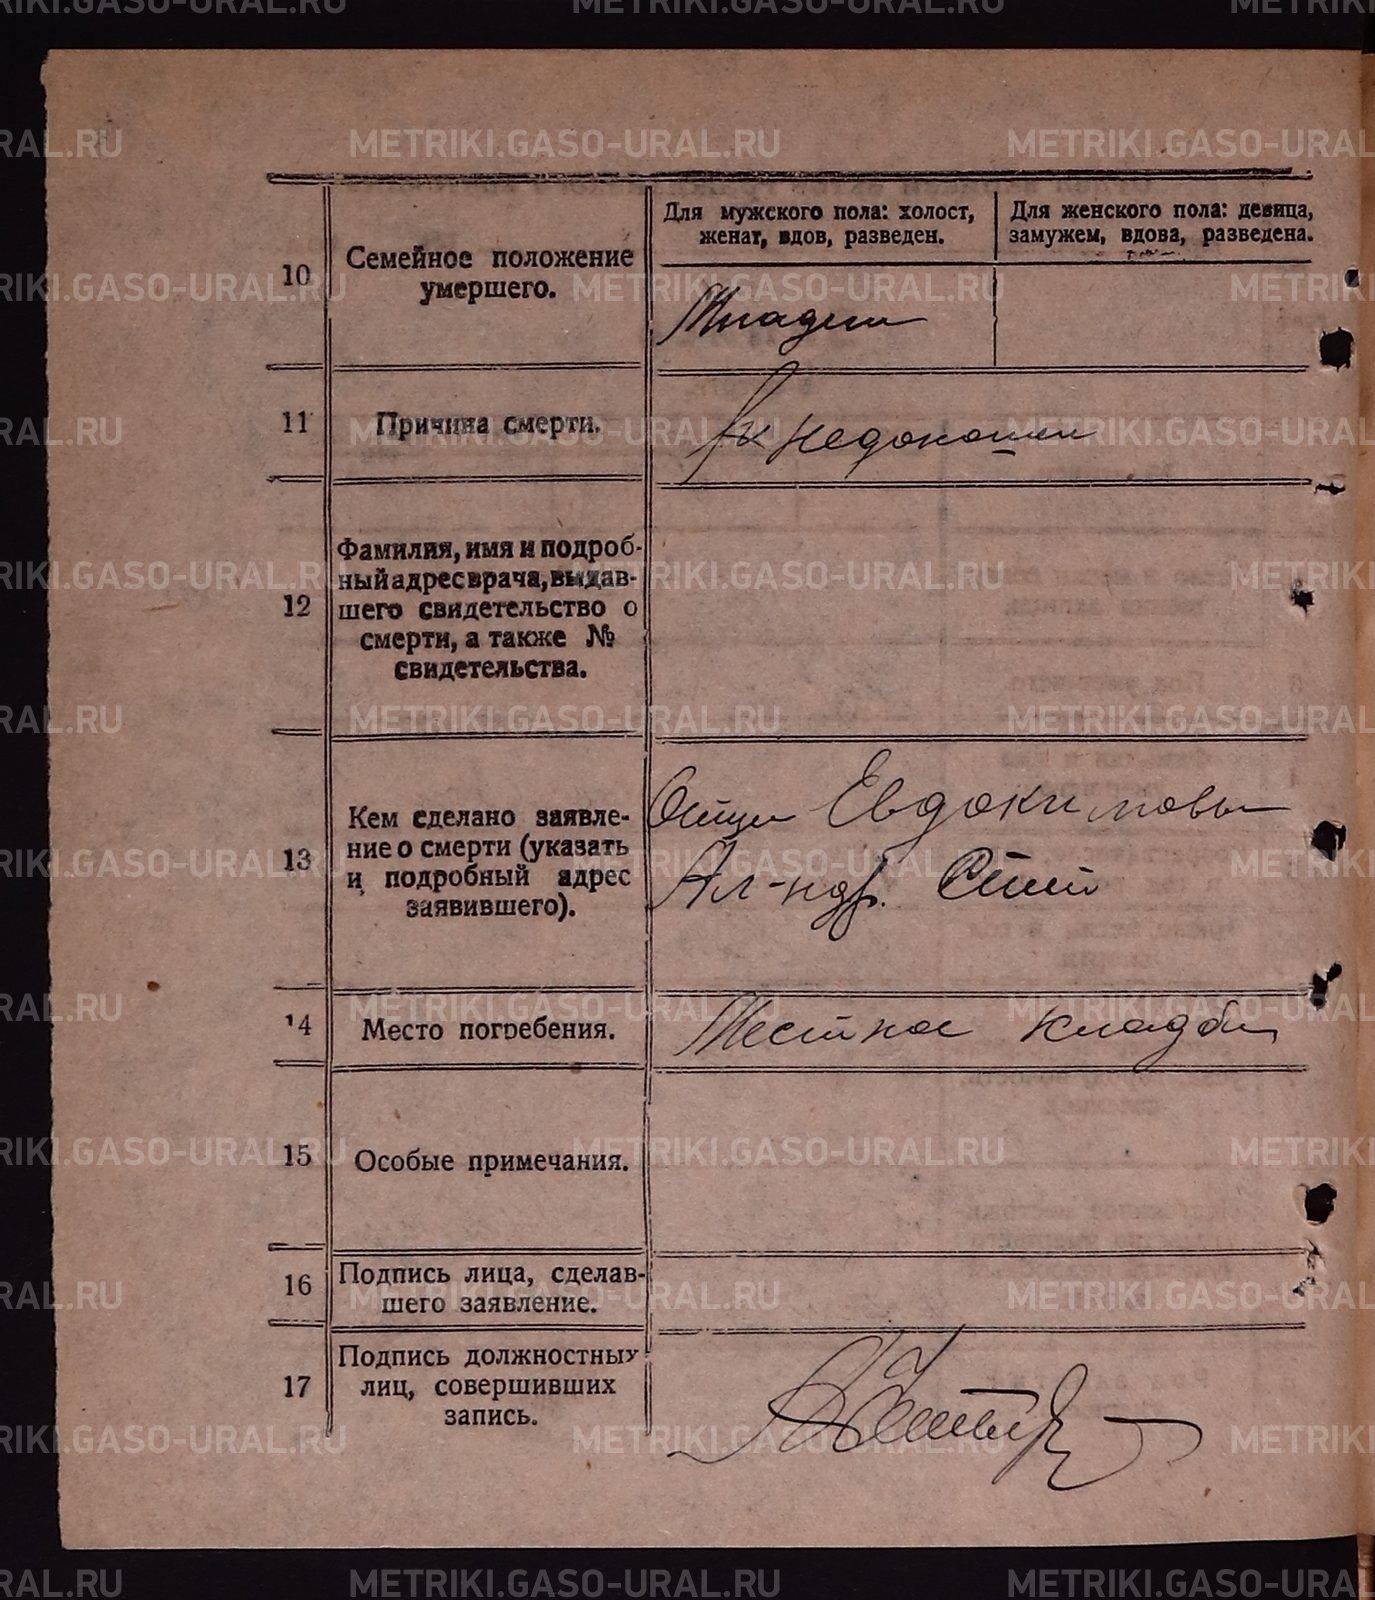 METRIKI.GASO-URAL.RU
Для мужского пола: холост,
женат, вдов, разведен.
Для женского пола: девица,
замужем, вдова, разведена.
10
Семейное положение
умершего.
Младен
11
Причина смерти.
недоношен
12
Фамилия, имя и подроб-
ный адрес врача, выдав-
шего свидетельство о
смерти, а также №
свидетельства.
13
Кем сделано заявле-
ние о смерти (указать
и подробный адрес
заявившего).
Отцом Евдокимовым
Ал-ндр.
14
Место погребения.
Местное кладби
15
Особые примечания.
16
Подпись лица, сделав-
шего заявление.
17
Подпись должностных
лиц, совершивших
запись.